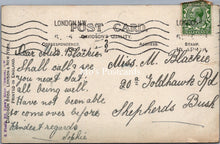 LONDON.N.W.
LONDON.N
POST CARD.
CORRESPONDENCE
ADDRESS
STAMP
Dear Miss Blackie
Shall call & see
you next Sat:
all being well.
Have not been able
to come over before
Kindest regards
Sophie
Miss. M. Blackie
20ª Goldhawk Rd
Shepherds Bush